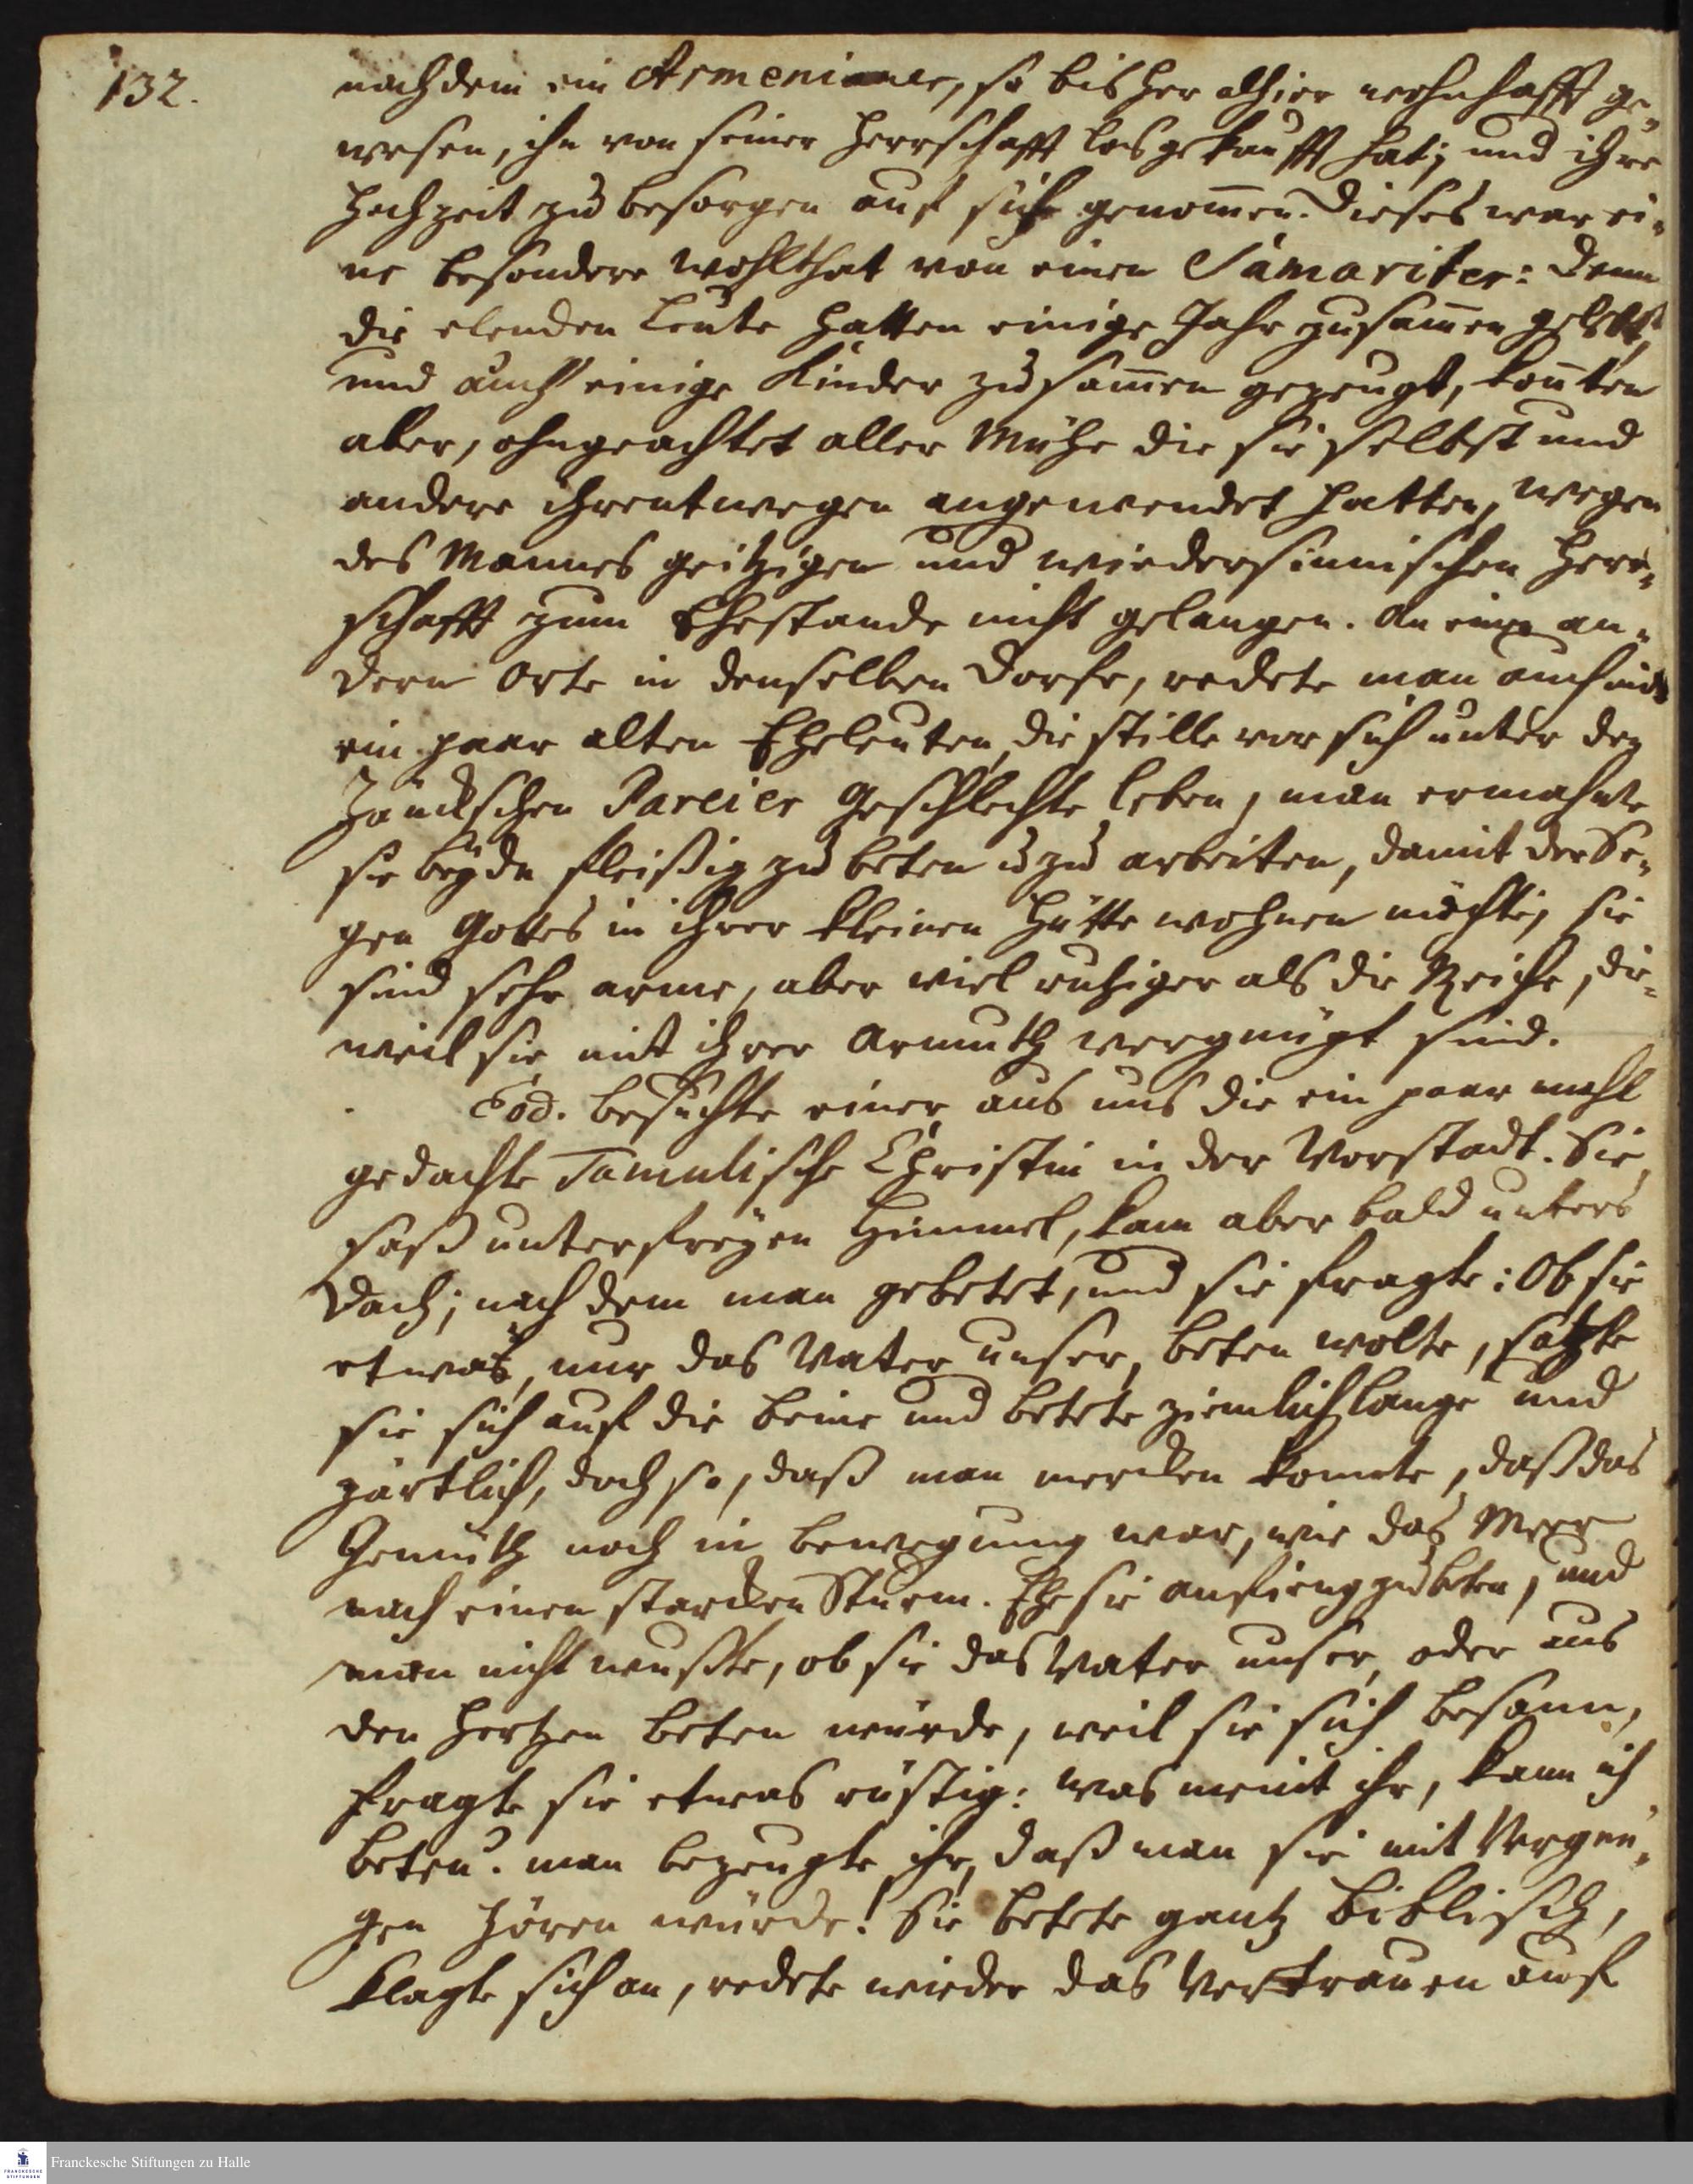 132.
nachdem ein Armenianer, so bisher alhier wohnhafft ge-
wesen, ihn von seiner Herrschafft losgekaufft hat; und ihre
Hochzeit zu besorgen auf sich genom̅en. Dieses war ei-
ne besondere Wohlthat von einen Samariter: denn
die elenden Leute hatten einige Jahr zusam̅en gelebt,
und auch einige Kinder zusam̅en gezeugt, kon̅ten
aber, ohngeachtet aller Mühe die sie selbst und
andere ihrentwegen angewendet hatten, wegen
des Mannes geitzigen und wiedersinnischen Herr-
schafft zum Ehestande nicht gelangen. An einen an-
dern Orte in denselben Dorfe, redete man auch mit
ein paar alten Eheleuten, die stille vor sich unter den
Zänckschen Pareier Geschlechte leben, man ermahnte
sie beyde fleißig zu beten u zu arbeiten, damit der Se-
gen Gottes in ihrer kleinen Hütte wohnen möchte; sie
sind sehr arme, aber viel ruhiger als die Reiche, die-
weil sie mit ihrer Armuth vergnügt sind.
Eod. besuchte einer aus uns die ein paar mahl
gedachte Tamulische Christin in der Vorstadt. Sie
saß unter freyen Himmel, kam aber bald unters
Dach; nach dem man gebetet, und sie fragte: Ob sie
etwas, nur das Vater unser, beten wolte, satzte
sie sich auf die Beine und betete ziemlich lange und
zärtlich, doch so, daß man mercken konnte, daß das
Gemüth noch in Bewegung war, wie das Meer
nach einen starcken Sturm. Ehe sie anfieng zu beten, und
man nicht wußte, ob sie das Vater unser, oder aus
den Hertzen beten würde, weil sie sich besann,
fragte sie etwas rüstig: was meint ihr, kann ich
beten? man bezeugte ihr, daß man sie mit Vergnü-
gen hören würde! Sie betete gantz biblisch,
klagte sich an, redete wieder das Vertrauen auf
Franckesche Stiftungen zu Halle
FRANCKESCHE
STIFTUNGEN